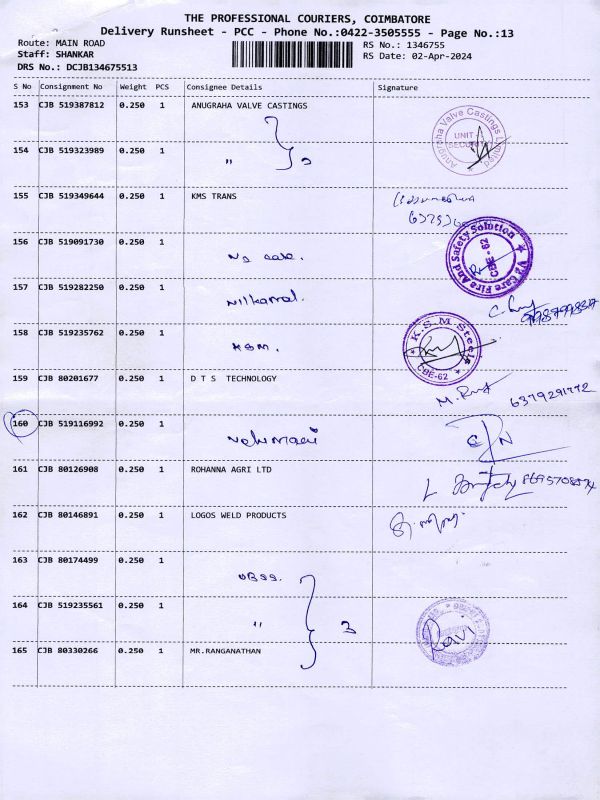 THE PROFESSIONAL COURIERS, COIMBATORE
Delivery Runsheet - PCC - Phone No.:0422-3505555 - Page No.:13
Route: MAIN ROAD
Staff: SHANKAR
DRS No.: DCJB134675513
RS No.: 1346755
RS Date: 02-Apr-2024
S No Consignment No Weight PCS Consignee Details Signature
153 CJB 519387812 0.250 1 ANUGRAHA VALVE CASTINGS
Anugraha Valve Castings Limited
UNIT
SECURITY
154 CJB 519323989 0.250 1 "
155 CJB 519349644 0.250 1 KMS TRANS
156 CJB 519091730 0.250 1 V2 care.
V2 Care Fire And Safety Solution
CBE-62
157 CJB 519282250 0.250 1 Nilkamal.
158 CJB 519235762 0.250 1 KSM.
K.S.M Steels
CBE-62
159 CJB 80201677 0.250 1 D T S TECHNOLOGY
6379291772
160 CJB 519116992 0.250 1
161 CJB 80126908 0.250 1 ROHANNA AGRI LTD
162 CJB 80146891 0.250 1 LOGOS WELD PRODUCTS
163 CJB 80174499 0.250 1
164 CJB 519235561 0.250 1 " 3
Ravi
165 CJB 80330266 0.250 1 MR.RANGANATHAN